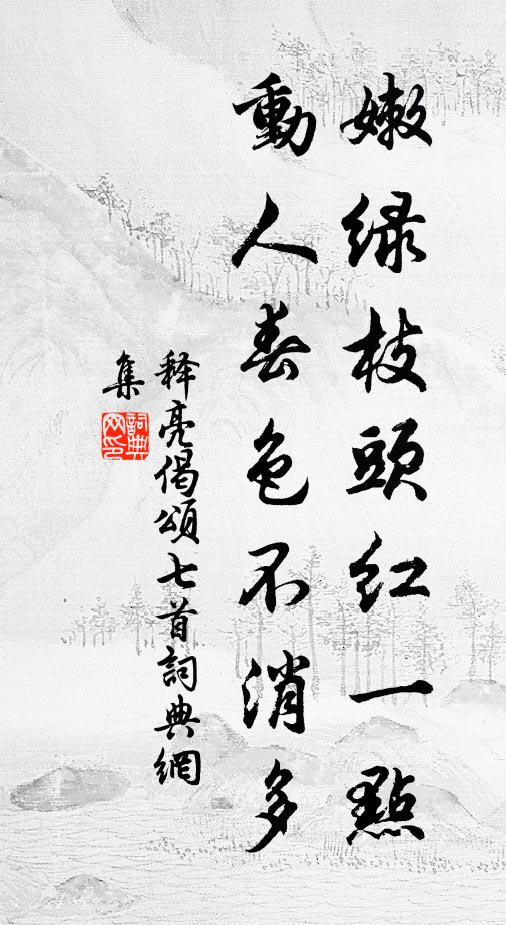 嫩绿枝頭红一點
動人春色不消多
释亮偈頌七首詞典網
集
詞典网印